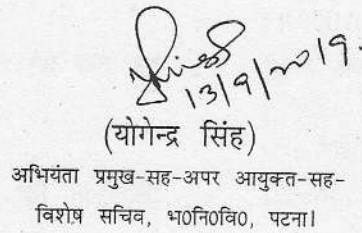 13/9/2019.
(योगेन्द्र सिंह)
अभियंता प्रमुख-सह-अपर आयुक्त-सह-
विशेष सचिव, भ0नि0वि0, पटना।